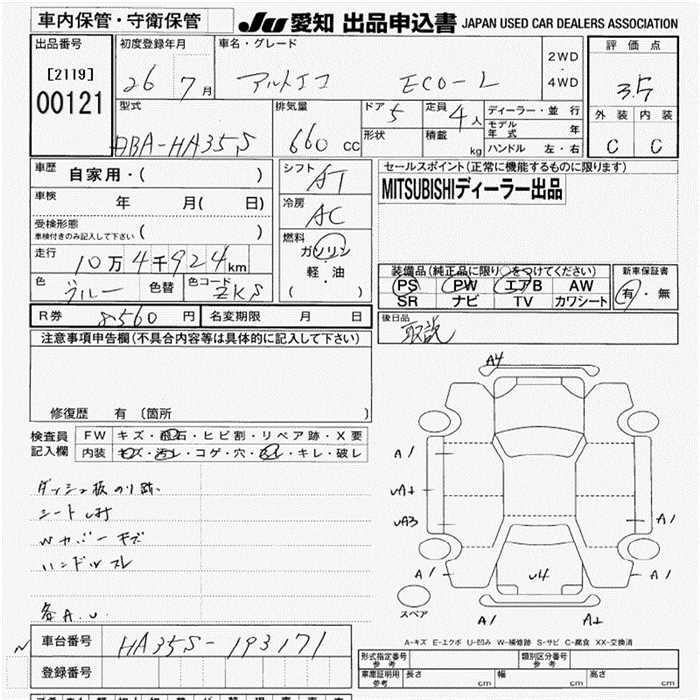 車内保管・守衛保管
JU 愛知 出品申込書 JAPAN USED CAR DEALERS ASSOCIATION
出品番号
[2119]
00121
初度登録年月
26 7月
車名・グレード
アルトエコ ECO-L
2WD
・
4WD
評価点
3.5
外装 内装
C C
型式
DBA-HA35S
排気量
660 cc
ドア 5
形状
定員 4人
積載 kg
ディーラー・並行
モデル年式 年
ハンドル 左・右
車歴 自家用・( )
車検 年 月( 日)
受検形態
車検付きのみ記入して下さい ( )
走行 10万4千924km
色 ブルー 色替 色コード ZKS
シフト AT
冷房 AC
燃料
ガソリン
軽・油
( )
セールスポイント(正常に機能するものに限ります)
MITSUBISHIディーラー出品
装備品(純正品に限り○をつけてください)
PS PW エアB AW
SR ナビ TV カワシート
新車保証書
有・無
R券 8560円 名変期限 月 日
後日品 取説
注意事項申告欄(不具合内容等は具体的に記入して下さい)
修復歴 有 (箇所 )
検査員記入欄
FW キズ・飛石・ヒビ割・リペア跡・X要
内装 キズ・汚レ・コゲ・穴・スレ・キレ・破レ
ダッシュ板のり跡
シート
Wカバーキズ
ハンドルスレ
各A.U.
A4
A1
UA3
A1
A1
U4
A1
A1
スペア
A-キズ E-エクボ U-凹み W-補修跡 S-サビ C-腐食 XX-交換済
車台番号 HA35S-193171
登録番号
形式指定番号 参考
類別区分番号 参考
車庫証明用 参考 長さ cm 幅 cm 高さ cm